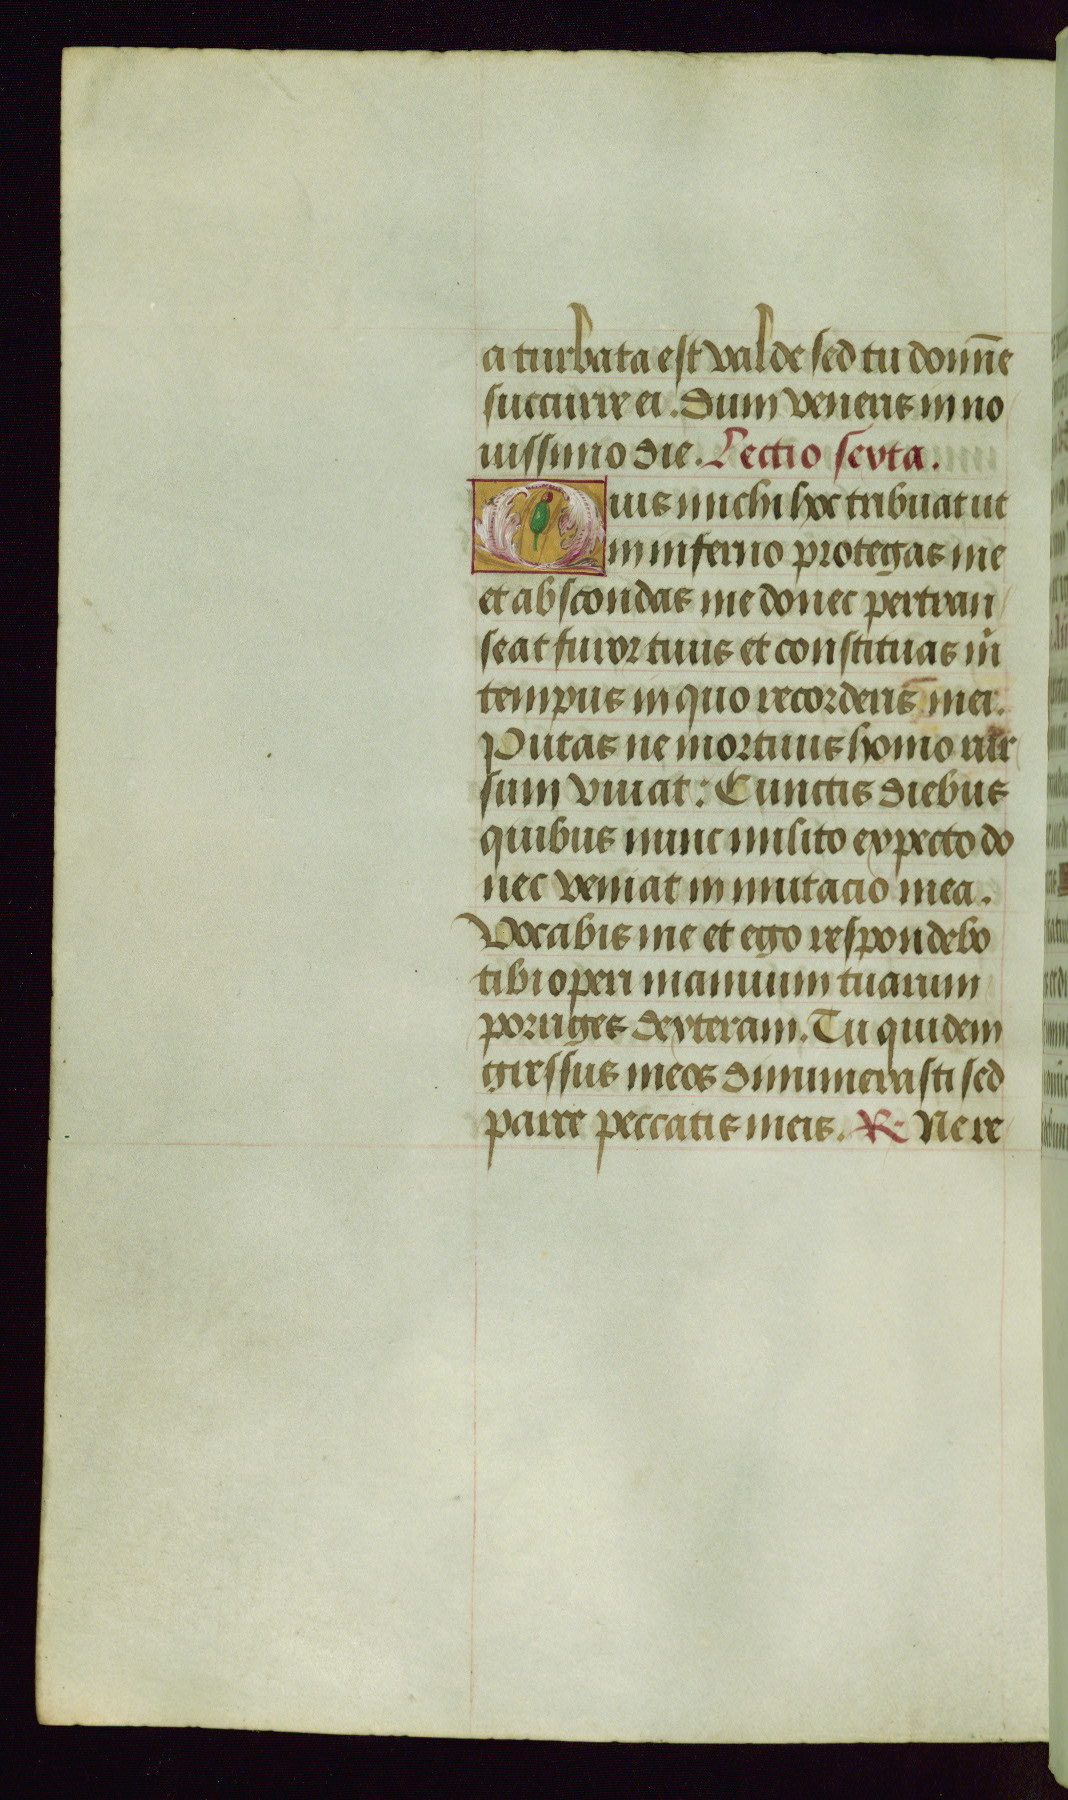 a turbata est valde sed tu domīe
succurre ei. Dum veneris in no
uissimo die. Lectio sexta.
Quis michi hoc tribuat ut
in inferno protegas me
et abscondas me donec pertran
seat furor tuus et constituas m̄
tempus in quo recorderis mei.
Putas ne mortuus homo rur
sum viuat: Cunctis diebus
quibus nunc milito expecto do
nec veniat in mutacio mea.
Vocabis me et ego respondebo
tibi operi manuum tuarum
porriges dexteram. Tu quidem
gressus meos dinumerasti sed
parce peccatis meis. R Ne re